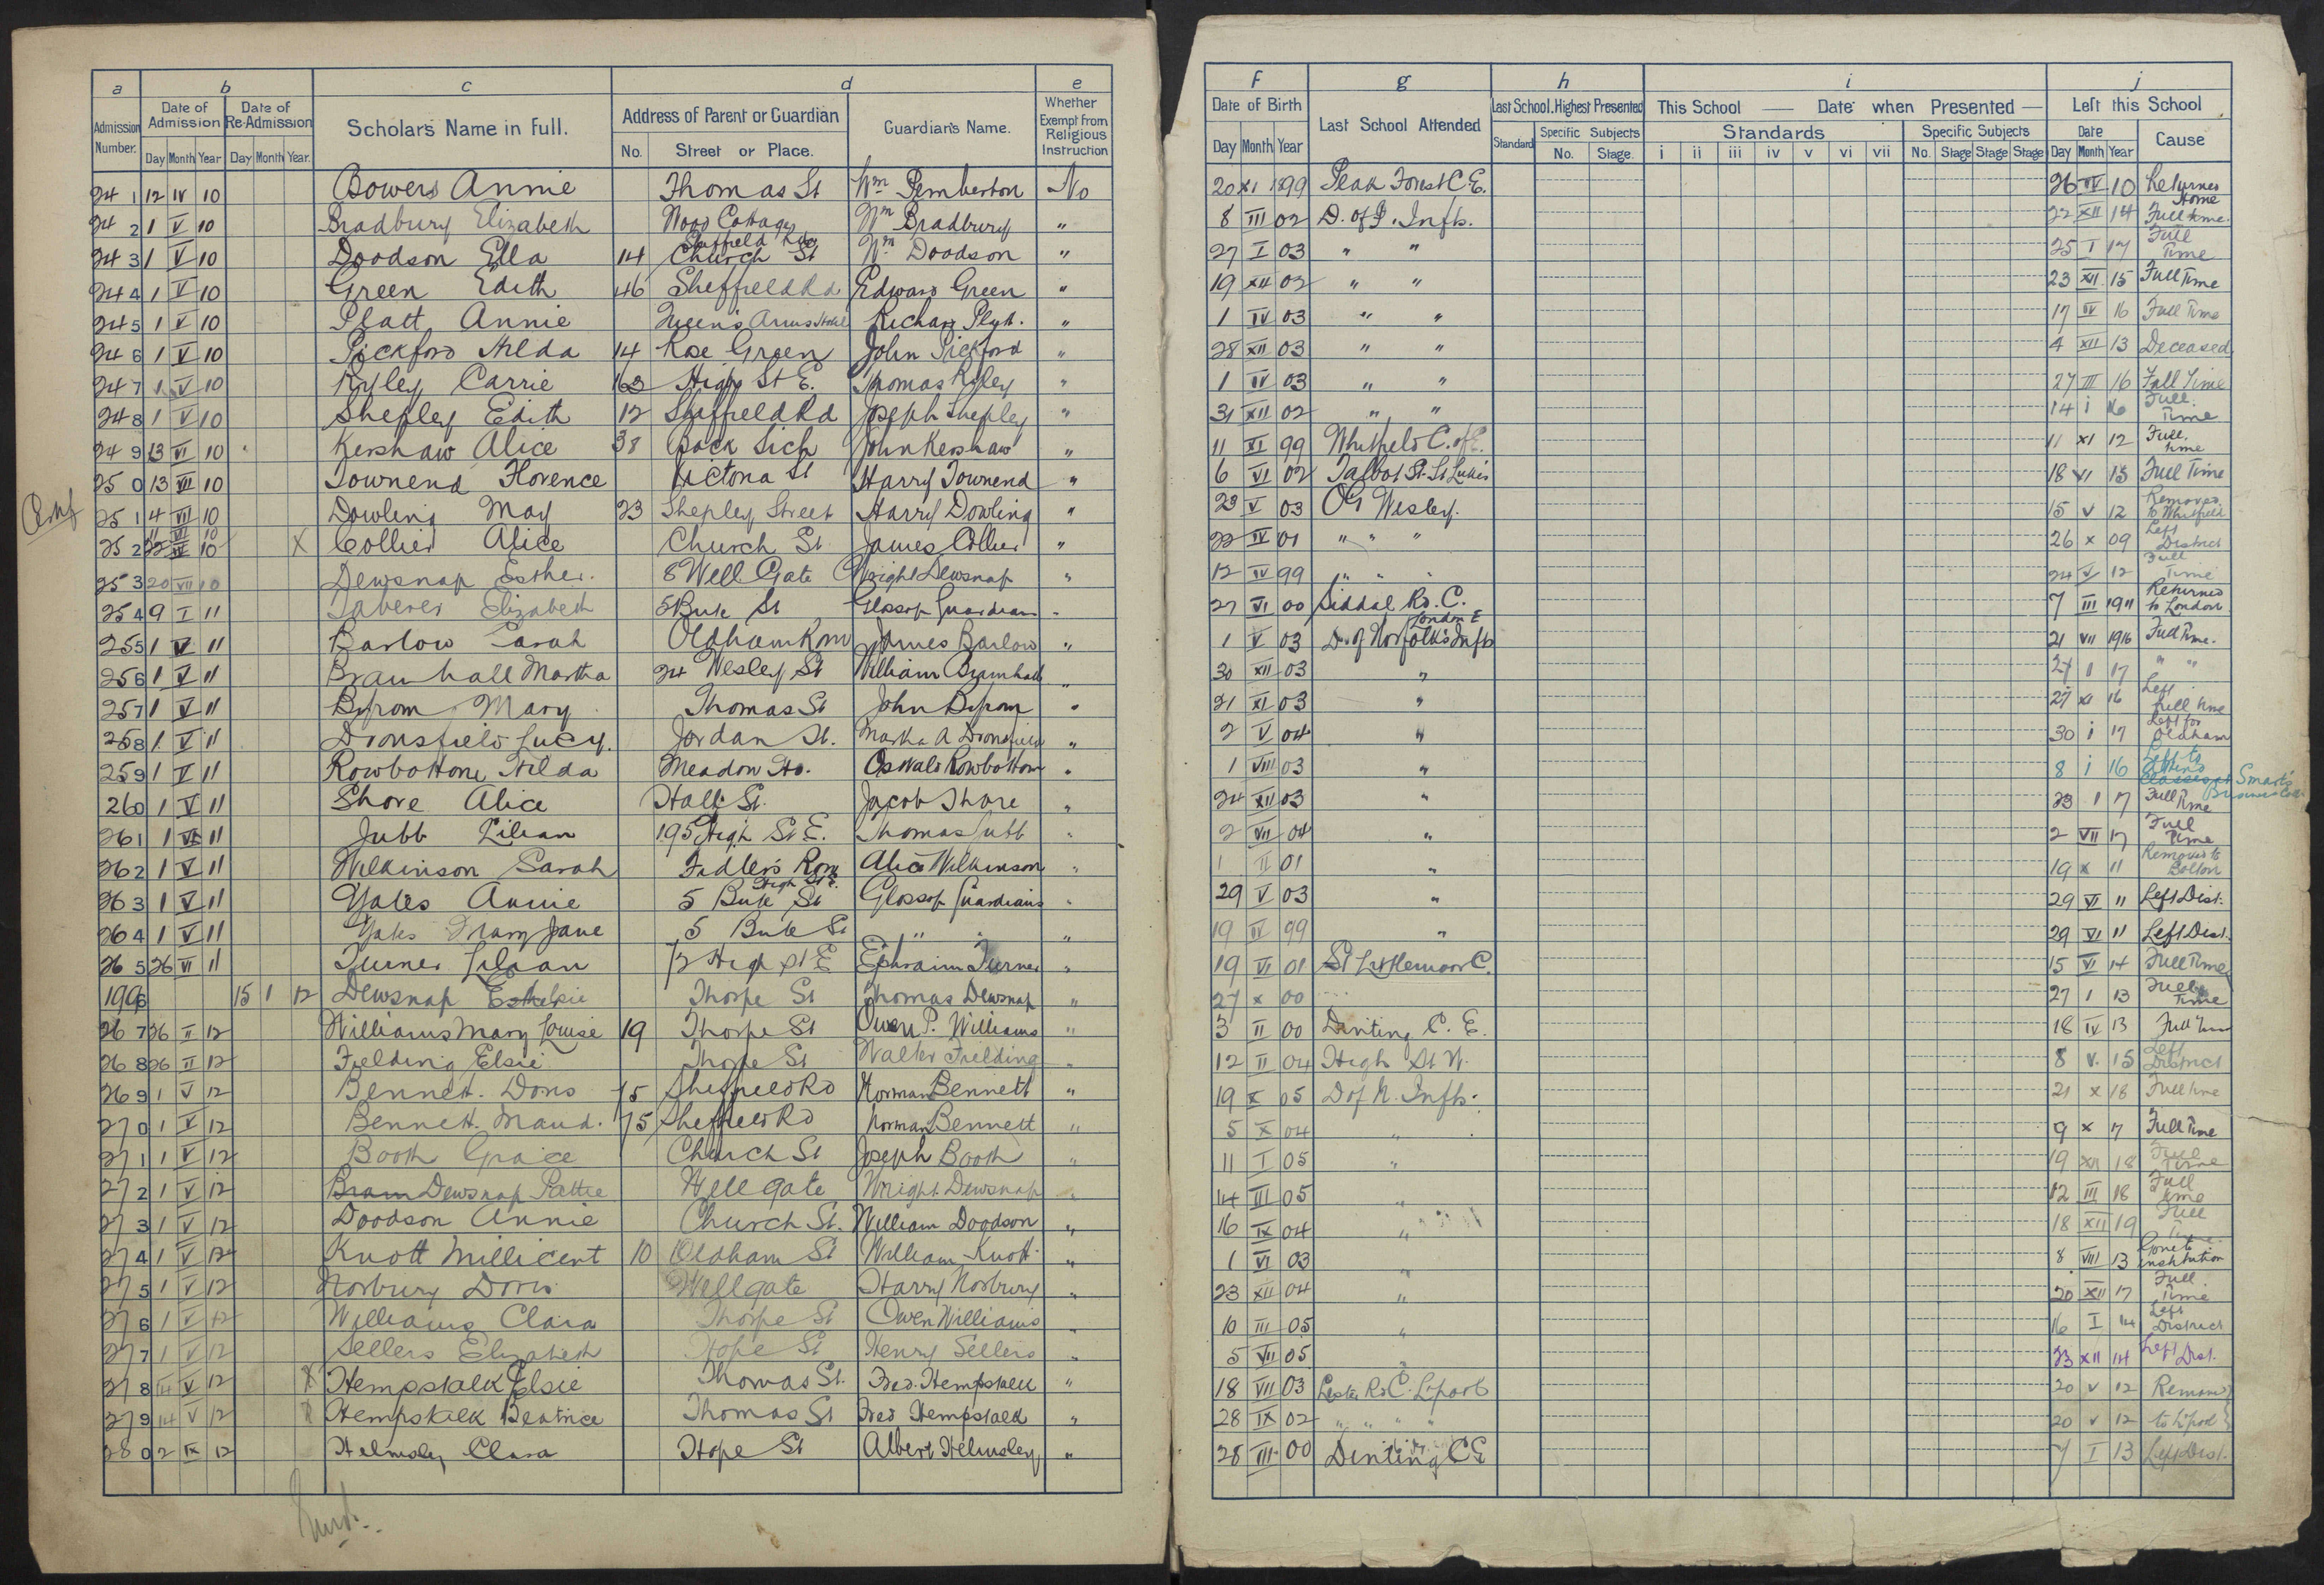 a b c d e
Admission Number. Date of Admission Date of Re-Admission Scholar's Name in Full. Address of Parent or Guardian Guardian's Name. Whether Exempt from Religious Instruction
Day Month Year Day Month Year. No. Street or Place.
241 12 IV 10 Bowers Annie Thomas St Wm Pemberton No
242 1 V 10 Bradbury Elizabeth Wood Cottages Sheffield Rd Wm Bradbury "
243 1 V 10 Doodson Ella 14 Church St Wm Doodson "
244 1 V 10 Green Edith 46 Sheffield Rd Edward Green "
245 1 V 10 Platt Annie Queen's Arms Hotel Richard Platt. "
246 1 V 10 Pickford Hilda 14 Rose Green John Pickford "
247 1 V 10 Ryley Carrie High St E. Thomas Ryley "
248 1 V 10 Shepley Edith 12 Sheffield Rd Joseph Shepley "
249 13 VI 10 Kershaw Alice 38 Back Sich John Kershaw "
250 13 VII 10 Townend Florence Victoria St Harry Townend "
251 4 VII 10 Dowling May 23 Shepley Street Harry Dowling "
252 10 X Collier Alice Church St James Collier "
253 20 VII 10 Dewsnap Esther. 8 Well Gate Wright Dewsnap "
254 9 I 11 Elizabeth 5 Bute St Glossop Guardians "
255 1 V 11 Barlow Sarah Oldham Row James Barlow "
256 1 V 11 Bramhall Martha 24 Wesley St William Bramhall "
257 1 V 11 Byrom Mary Thomas St John Byrom "
258 1 V 11 Dronsfield Lucy. Jordan St. Martha A Dronsfield "
259 1 V 11 Rowbottom Hilda Meadow Ho. Oswald Rowbottom "
260 1 V 11 Shore Alice Hall St. Jacob Shore "
261 1 VI 11 Jubb Lilian 195 High St E. Thomas Jubb "
262 1 V 11 Wilkinson Sarah Fidler's Row High St E. Alice Wilkinson "
263 1 V 11 Yates Annie 5 Bute St Glossop Guardians "
264 1 V 11 Yates Mary Jane 5 Bute St " " "
265 26 VI 11 Turner Lilian 72 High St E Ephraim Turner "
199 15 1 12 Dewsnap Elsie Thorpe St Thomas Dewsnap "
267 26 II 12 Williams Mary Louise 19 Thorpe St Owen P. Williams "
268 26 II 12 Fielding Elsie Thorpe St Walter Fielding "
269 1 V 12 Bennett. Doris 75 Sheffield Rd Norman Bennett "
270 1 V 12 Bennett. Maud. 75 Sheffield Rd Norman Bennett "
271 1 V 12 Booth Grace Church St Joseph Booth "
272 1 V 12 Dewsnap Pattie Well gate Wright Dewsnap "
273 1 V 12 Doodson Annie Church St. William Doodson "
274 1 V 12 Knott Millicent 10 Oldham St William Knott. "
275 1 V 12 Norbury Doris Wellgate Harry Norbury "
276 1 V 12 Williams Clara Thorpe St Owen Williams "
277 1 V 12 Sellers Elizabeth Hope St Henry Sellers "
278 14 V 12 X Hempstalk Elsie Thomas St. Fred. Hempstalk "
279 14 V 12 X Hempstalk Beatrice Thomas St Fred Hempstalk "
280 2 IX 12 Helmsley Clara Hope St Albert Helmsley "
f g h i j
Date of Birth Last School Attended Last School. Highest Presented This School — Date when Presented — Left this School
Day Month Year Standard Specific Subjects Standards Specific Subjects Date Cause
No. Stage. i ii iii iv v vi vii No. Stage Stage Stage Day Month Year
20 XI 1899 Peak Forest C.E. 26 IV 10 Returned Home
8 III 02 D. of N. Infts. 22 XII 14 Full time.
27 I 03 " " 25 I 17 Full Time
19 XII 02 " " 23 XII 15 Full Time
1 IV 03 " " 17 IV 16 Full Time
28 XII 03 " " 4 XII 13 Deceased
1 IV 03 " " 27 III 16 Full Time
31 XII 02 " " 14 i 16 Full Time
11 XI 99 Whitfield C. of E. 11 XI 12 Full time
6 VI 02 Talbot St. St Luke's 18 VI 15 Full Time
23 V 03 OG Wesley. 15 V 12 Removed to Whitfield
22 IV 01 " " " 26 X 09 Left District
12 IV 99 " " " 24 V 12 Full Time
27 VI 00 Siddal Rd. C. London E 7 III 1911 Returned to London
1 V 03 D. of Norfolk's Infts 21 VII 1916 Full Time.
30 XII 03 " 27 I 17 " "
21 XI 03 " 27 XI 16 Left full time
2 V 04 " 30 i 17 Left for Oldham
1 VIII 03 " 8 i 16 Left to attend Classes at Smart's Business Coll.
24 XII 03 " 23 1 17 Full Time
2 VII 04 " 2 VII 17 Full Time
1 II 01 " 19 X 11 Removed to Bolton
29 V 03 " 29 VI 11 Left Dist.
19 II 99 " 29 VI 11 Left Dist.
19 VI 01 St Littlemoor C. 15 VI 14 Full Time
27 X 00 27 1 13 Full Time
3 II 00 Dinting C. E. 18 IV 13 Full Time
12 II 04 High St W. 8 V. 15 Left District
19 X 05 D of N. Infts. 21 X 18 Full time
5 X 04 " 9 X 17 Full Time
11 I 05 " 19 XII 18 Full Time
14 III 05 " 12 III 18 Full time
16 IX 04 " 18 XII 19 Full
1 VI 03 " 8 VIII 13 Gone to institution
23 XII 04 " 20 XII 17 Full Time
10 III 05 " 16 I 14 Left District
5 VII 05 " 23 XII 14 Left Dist.
18 VII 03 Lester Rd C. L'pool 20 V 12 Removed
28 IX 02 " " " " 20 V 12 to L'pool
28 III 00 Dinting CE 7 I 13 Left Dist.